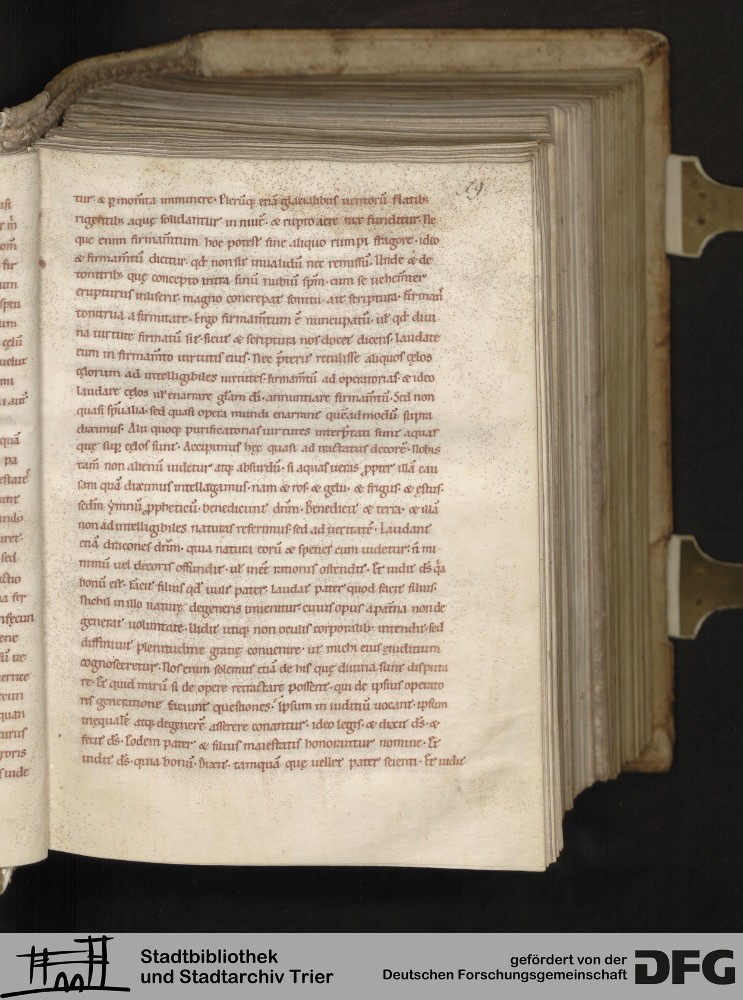 19
tur · & ꝑ momta imminere · Pleruq; etiā glacialibus uentorū flatib;
rigentib; aquę solidantur in niuē · & rupto aere nix funditur · Ne
que enim firmamtum hoc potest sine aliquo rumpi fragore · ideo
& firmamtū dicitur · qd non sit inualidū nec remissū · Unde & de
tonitrib; quę concepto intra sinū nubiū spū · cum se uehemter
erupturus inuserit · magno concrepat sonitu · ait scriptura · firman
tonitrua a firmitate · Ergo firmamtum ē nuncupatū · ul qd diui
na uirtute firmatū sit · sicut & scriptura nos docet dicens · Laudate
eum in firmamto uirtutis eius · Nec p̄terit retulisse aliquos cęlos
cęlorum ad intelligibiles uirtutes · firmamtū ad operatorias · & ideo
laudare cęlos ul enarrare głam dī · annuntiare firmamtū · Sed non
quasi spūalia · sed quasi opera mundi enarrant queadmodū supra
diximus · Alii quoq; purificatorias uirtutes interptati sunt aquas
quę sup cęlos sunt · Accipimus hęc quasi ad tractatus decorē · Nobis
tam non alienū uidetur atq; absurdū · si aquas ueras ꝓpter illā cau
sam quā diximus intellagamus · nam & ros · & gelu · & frigus · & ęstus ·
scdm ẏmnū ꝓpheticū · benedicunt dnm · Benedicit & terra · & illā
non ad intelligibiles naturas referimus · sed ad ueritatē · Laudant
etiā dracones dnm · quia natura eorū & species cum uidetur · n̄ mi
nimū uel decoris offundit · ul inee rationis ostendit · Et uidit ds qa
bonū est · Facit filius qd uult pater · laudat pater quod facit filius ·
Nichil in illo naturę degeneris inuenitur · cuius opus a patna non de
generat uoluntate · Uidit utiq; non oculis corporalib; intendit · sed
diffiniuit plenitudine gratię conuenire · ut michi eius iuditium
cognosceretur · Nos enim solemus etiā de his quę diuina sunt disputa
re · Et quid mirū si de opere retractare possent · qui de ipsius operato
ris generatione faciunt questiones · Ipsum in iuditiū uocant · ipsum
inęqualē atq; degenerē asserere conantur · ideo legis · & dixit ds · &
fecit ds · Eodem pater & filius maiestatis honorantur nomine · Et
uidit ds · quia bonū · Dixit · tamquā quę uellet pater scienti · Et uidit
Stadtbibliothek
und Stadtarchiv Trier
gefördert von der
Deutschen Forschungsgemeinschaft
DFG